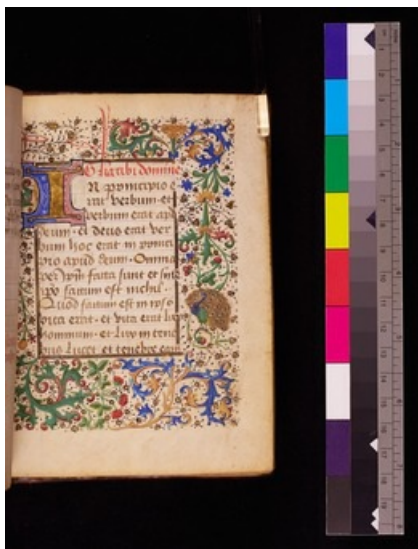 Gloria tibi domine
In principio e
rat verbum et
verbum erat apud
deum et deus erat ver
bum hoc erat in princi
pio apud deum Omnia
per ipm facta sunt et sine
ipo factum est nichil
Quod factum est in ipso
vita erat et vita erat lux
hominum et lux in tene
bris lucet et tenebre eam